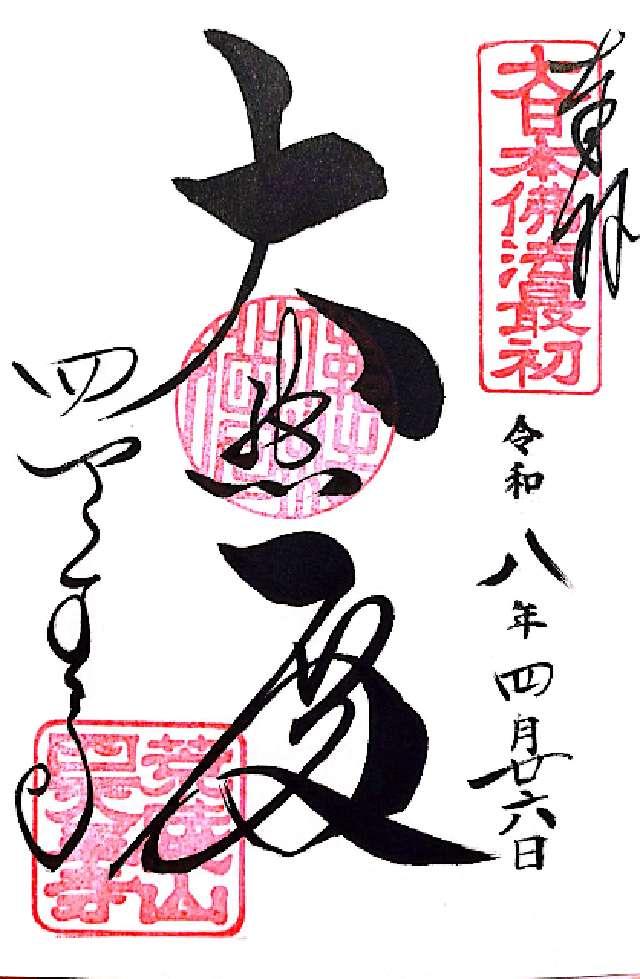 奉拝
大日本佛法最初
令和八年四月廿六日
大悲殿
四天王寺
荒陵山
四天王寺